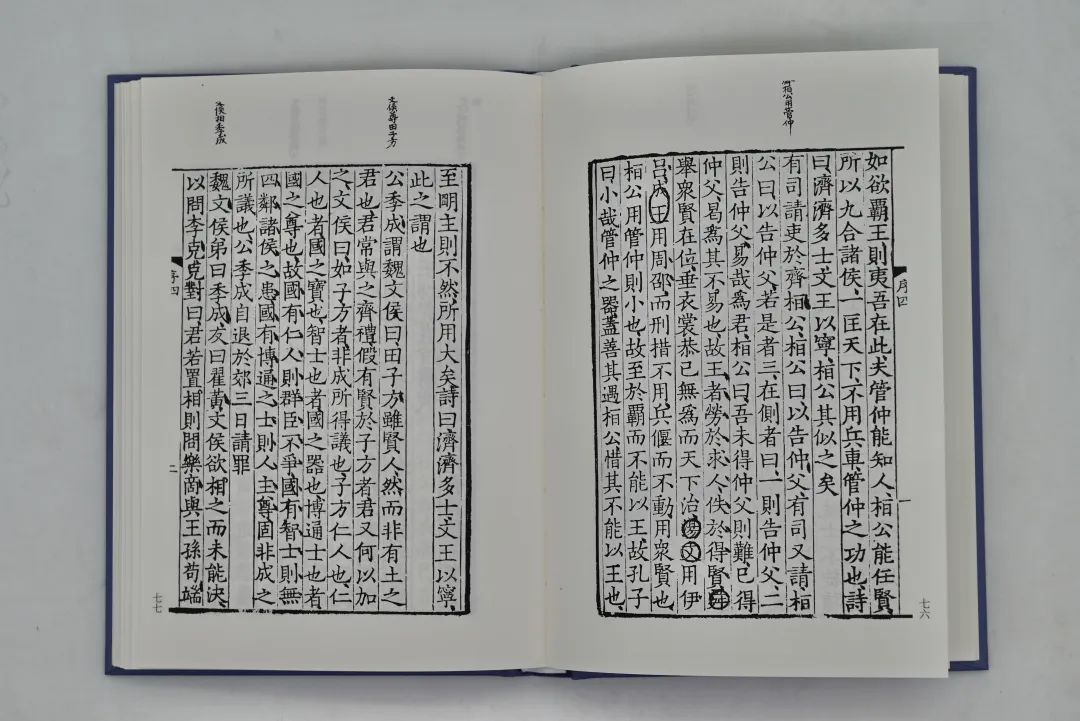 齊桓公用管仲
如欲霸王則夷吾在此夫管仲能知人桓公能任賢
所以九合諸侯一匡天下不用兵車管仲之功也詩
曰濟濟多士文王以寧桓公其似之矣
有司請吏於齊桓公桓公曰以告仲父有司又請桓
公曰以告仲父若是者三在側者曰一則告仲父二
則告仲父易哉為君桓公曰吾未得仲父則難已得
仲父曷為其不易也故王者勞於求人佚於得賢舜
舉衆賢在位垂衣裳恭己無為而天下治湯文用伊
呂成王用周邵而刑措不用兵偃而不動用衆賢也
桓公用管仲則小也故至於霸而不能以王故孔子
曰小哉管仲之器蓋善其遇桓公惜其不能以王也
序四
一
七六
文侯尊田子方
文侯相季成
至明主則不然所用大矣詩曰濟濟多士文王以寧
此之謂也
公季成謂魏文侯曰田子方雖賢人然而非有土之
君也君常與之齊禮假有賢於子方者君又何以加
之文侯曰如子方者非成所得議也子方仁人也仁
人也者國之寶也智士也者國之器也博通士也者
國之尊也故國有仁人則群臣不爭國有智士則無
四鄰諸侯之患國有博通之士則人主尊固非成之
所議也公季成自退於郊三日請罪
魏文侯弟曰季成友曰翟黃文侯欲相之而未能決
以問李克克對曰君若置相則問樂商與王孫苟端
序四
二
七七